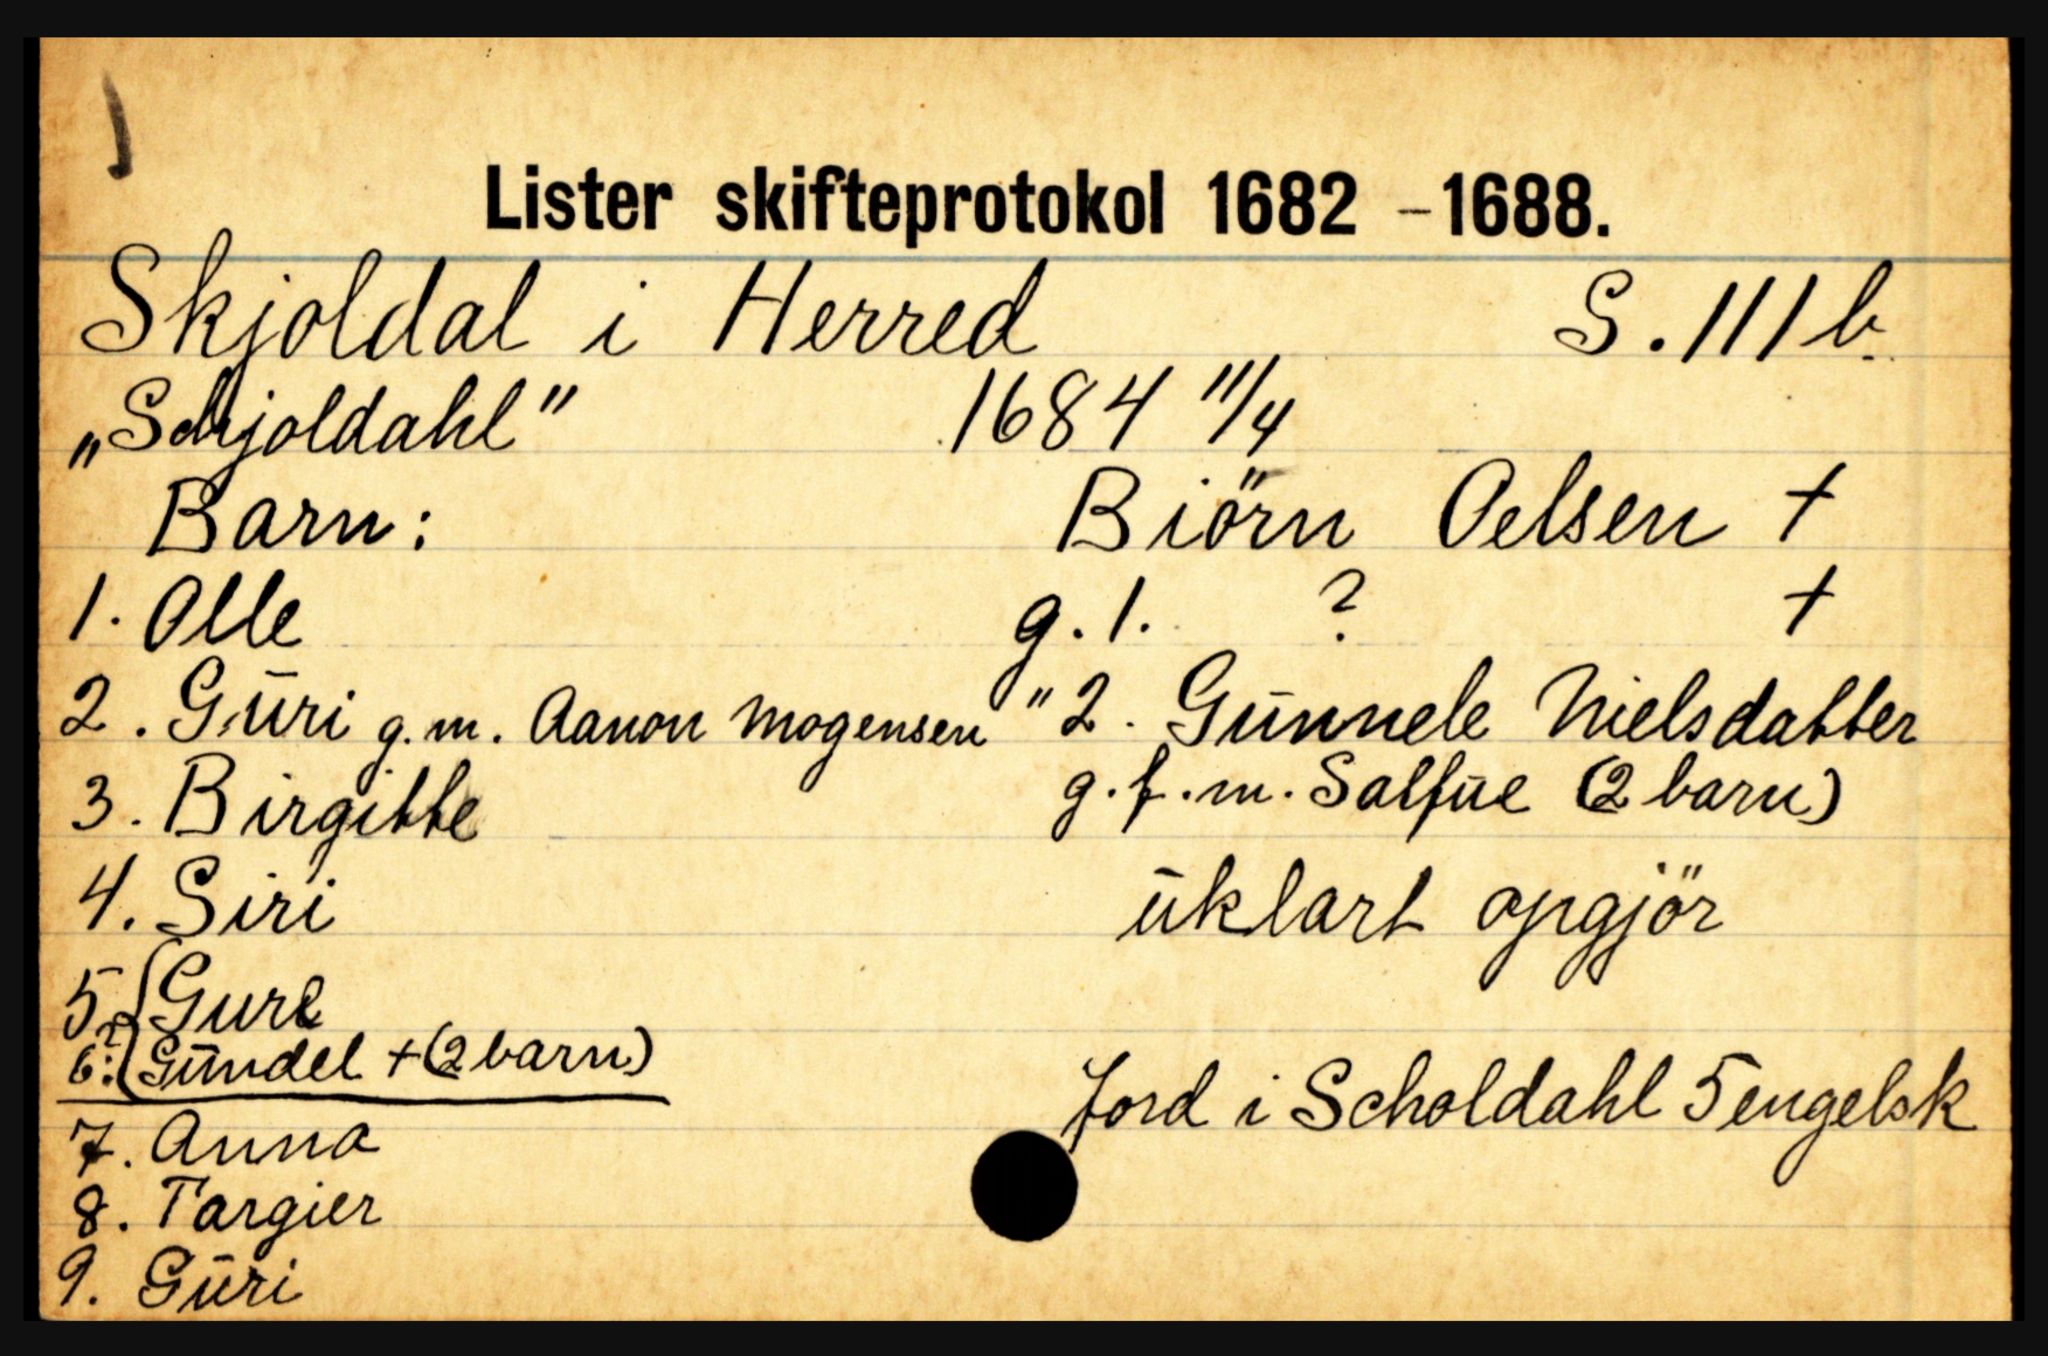 Lister skifteprotokol 1682 - 1688.
Skjoldal i Herred S. 111 b.
„Schjoldahl" 1684 11/4
Barn: Biörn Oelsen +
1. Olle g. 1. ? +
2. Gūri g. m. Aanon Mogensen " 2. Gūnnele Nielsdatter
3. Birgitte g. f. m. Salfūe (2 barn)
4. Siri ūklart opgjör
5. Gure
6. ? Gūndel + (2 barn)
Jord i Scholdahl 5 engelsk
7. Anna
8. Targier
9. Gūri